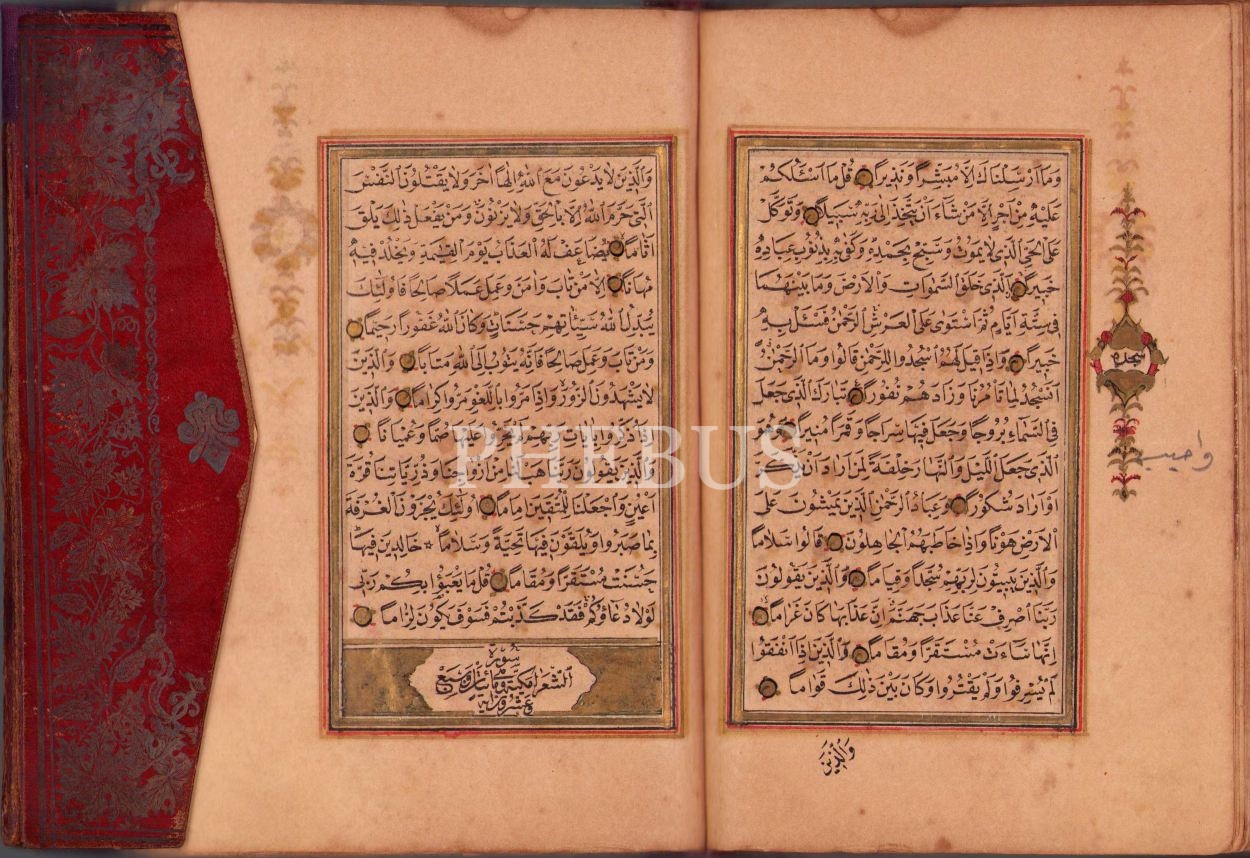 وَمَا اَرْسَلْنَاكَ اِلَّا مُبَشِّرًا وَنَذِيرًا قُلْ مَا اَسْئَلُكُمْ
عَلَيْهِ مِنْ اَجْرٍ اِلَّا مَنْ شَاءَ اَنْ يَتَّخِذَ اِلٰى رَبِّهِ سَبِيلًا وَتَوَكَّلْ
عَلَى الْحَيِّ الَّذِى لَا يَمُوتُ وَسَبِّحْ بِحَمْدِهِ وَكَفٰى بِهِ بِذُنُوبِ عِبَادِهِ
خَبِيرًا اَلَّذِى خَلَقَ السَّمٰوَاتِ وَالْاَرْضَ وَمَا بَيْنَهُمَا
فِى سِتَّةِ اَيَّامٍ ثُمَّ اسْتَوٰى عَلَى الْعَرْشِ اَلرَّحْمٰنُ فَسْئَلْ بِهِ
خَبِيرًا وَاِذَا قِيلَ لَهُمُ اسْجُدُوا لِلرَّحْمٰنِ قَالُوا وَمَا الرَّحْمٰنُ
اَنَسْجُدُ لِمَا تَأْمُرُنَا وَزَادَهُمْ نُفُورًا تَبَارَكَ الَّذِى جَعَلَ
فِى السَّمَاءِ بُرُوجًا وَجَعَلَ فِيهَا سِرَاجًا وَقَمَرًا مُنِيرًا وَهُوَ
الَّذِى جَعَلَ اللَّيْلَ وَالنَّهَارَ خِلْفَةً لِمَنْ اَرَادَ اَنْ يَذَّكَّرَ
اَوْ اَرَادَ شُكُورًا وَعِبَادُ الرَّحْمٰنِ الَّذِينَ يَمْشُونَ عَلَى
الْاَرْضِ هَوْنًا وَاِذَا خَاطَبَهُمُ الْجَاهِلُونَ قَالُوا سَلَامًا
وَالَّذِينَ يَبِيتُونَ لِرَبِّهِمْ سُجَّدًا وَقِيَامًا وَالَّذِينَ يَقُولُونَ
رَبَّنَا اصْرِفْ عَنَّا عَذَابَ جَهَنَّمَ اِنَّ عَذَابَهَا كَانَ غَرَامًا
اِنَّهَا سَاءَتْ مُسْتَقَرًّا وَمُقَامًا وَالَّذِينَ اِذَا اَنْفَقُوا
لَمْ يُسْرِفُوا وَلَمْ يَقْتُرُوا وَكَانَ بَيْنَ ذٰلِكَ قَوَامًا
وَالَّذِينَ
سجده
واجب
وَالَّذِينَ لَا يَدْعُونَ مَعَ اللّٰهِ اِلٰهًا اٰخَرَ وَلَا يَقْتُلُونَ النَّفْسَ
الَّتِى حَرَّمَ اللّٰهُ اِلَّا بِالْحَقِّ وَلَا يَزْنُونَ وَمَنْ يَفْعَلْ ذٰلِكَ يَلْقَ
اَثَامًا يُضَاعَفْ لَهُ الْعَذَابُ يَوْمَ الْقِيٰمَةِ وَيَخْلُدْ فِيهِ
مُهَانًا اِلَّا مَنْ تَابَ وَاٰمَنَ وَعَمِلَ عَمَلًا صَالِحًا فَاُولٰئِكَ
يُبَدِّلُ اللّٰهُ سَيِّئَاتِهِمْ حَسَنَاتٍ وَكَانَ اللّٰهُ غَفُورًا رَحِيمًا
وَمَنْ تَابَ وَعَمِلَ صَالِحًا فَاِنَّهُ يَتُوبُ اِلَى اللّٰهِ مَتَابًا وَالَّذِينَ
لَا يَشْهَدُونَ الزُّورَ وَاِذَا مَرُّوا بِاللَّغْوِ مَرُّوا كِرَامًا وَالَّذِينَ
اِذَا ذُكِّرُوا بِاٰيَاتِ رَبِّهِمْ لَمْ يَخِرُّوا عَلَيْهَا صُمًّا وَعُمْيَانًا
وَالَّذِينَ يَقُولُونَ رَبَّنَا هَبْ لَنَا مِنْ اَزْوَاجِنَا وَذُرِّيَّاتِنَا قُرَّةَ
اَعْيُنٍ وَاجْعَلْنَا لِلْمُتَّقِينَ اِمَامًا اُولٰئِكَ يُجْزَوْنَ الْغُرْفَةَ
بِمَا صَبَرُوا وَيُلَقَّوْنَ فِيهَا تَحِيَّةً وَسَلَامًا * خَالِدِينَ فِيهَا
حَسُنَتْ مُسْتَقَرًّا وَمُقَامًا قُلْ مَا يَعْبَؤُا بِكُمْ رَبِّى
لَوْلَا دُعَاؤُكُمْ فَقَدْ كَذَّبْتُمْ فَسَوْفَ يَكُونُ لِزَامًا
سورة
الشعرا مكية وهى مائتان وسبع
وعشرون اية
PHEBUS